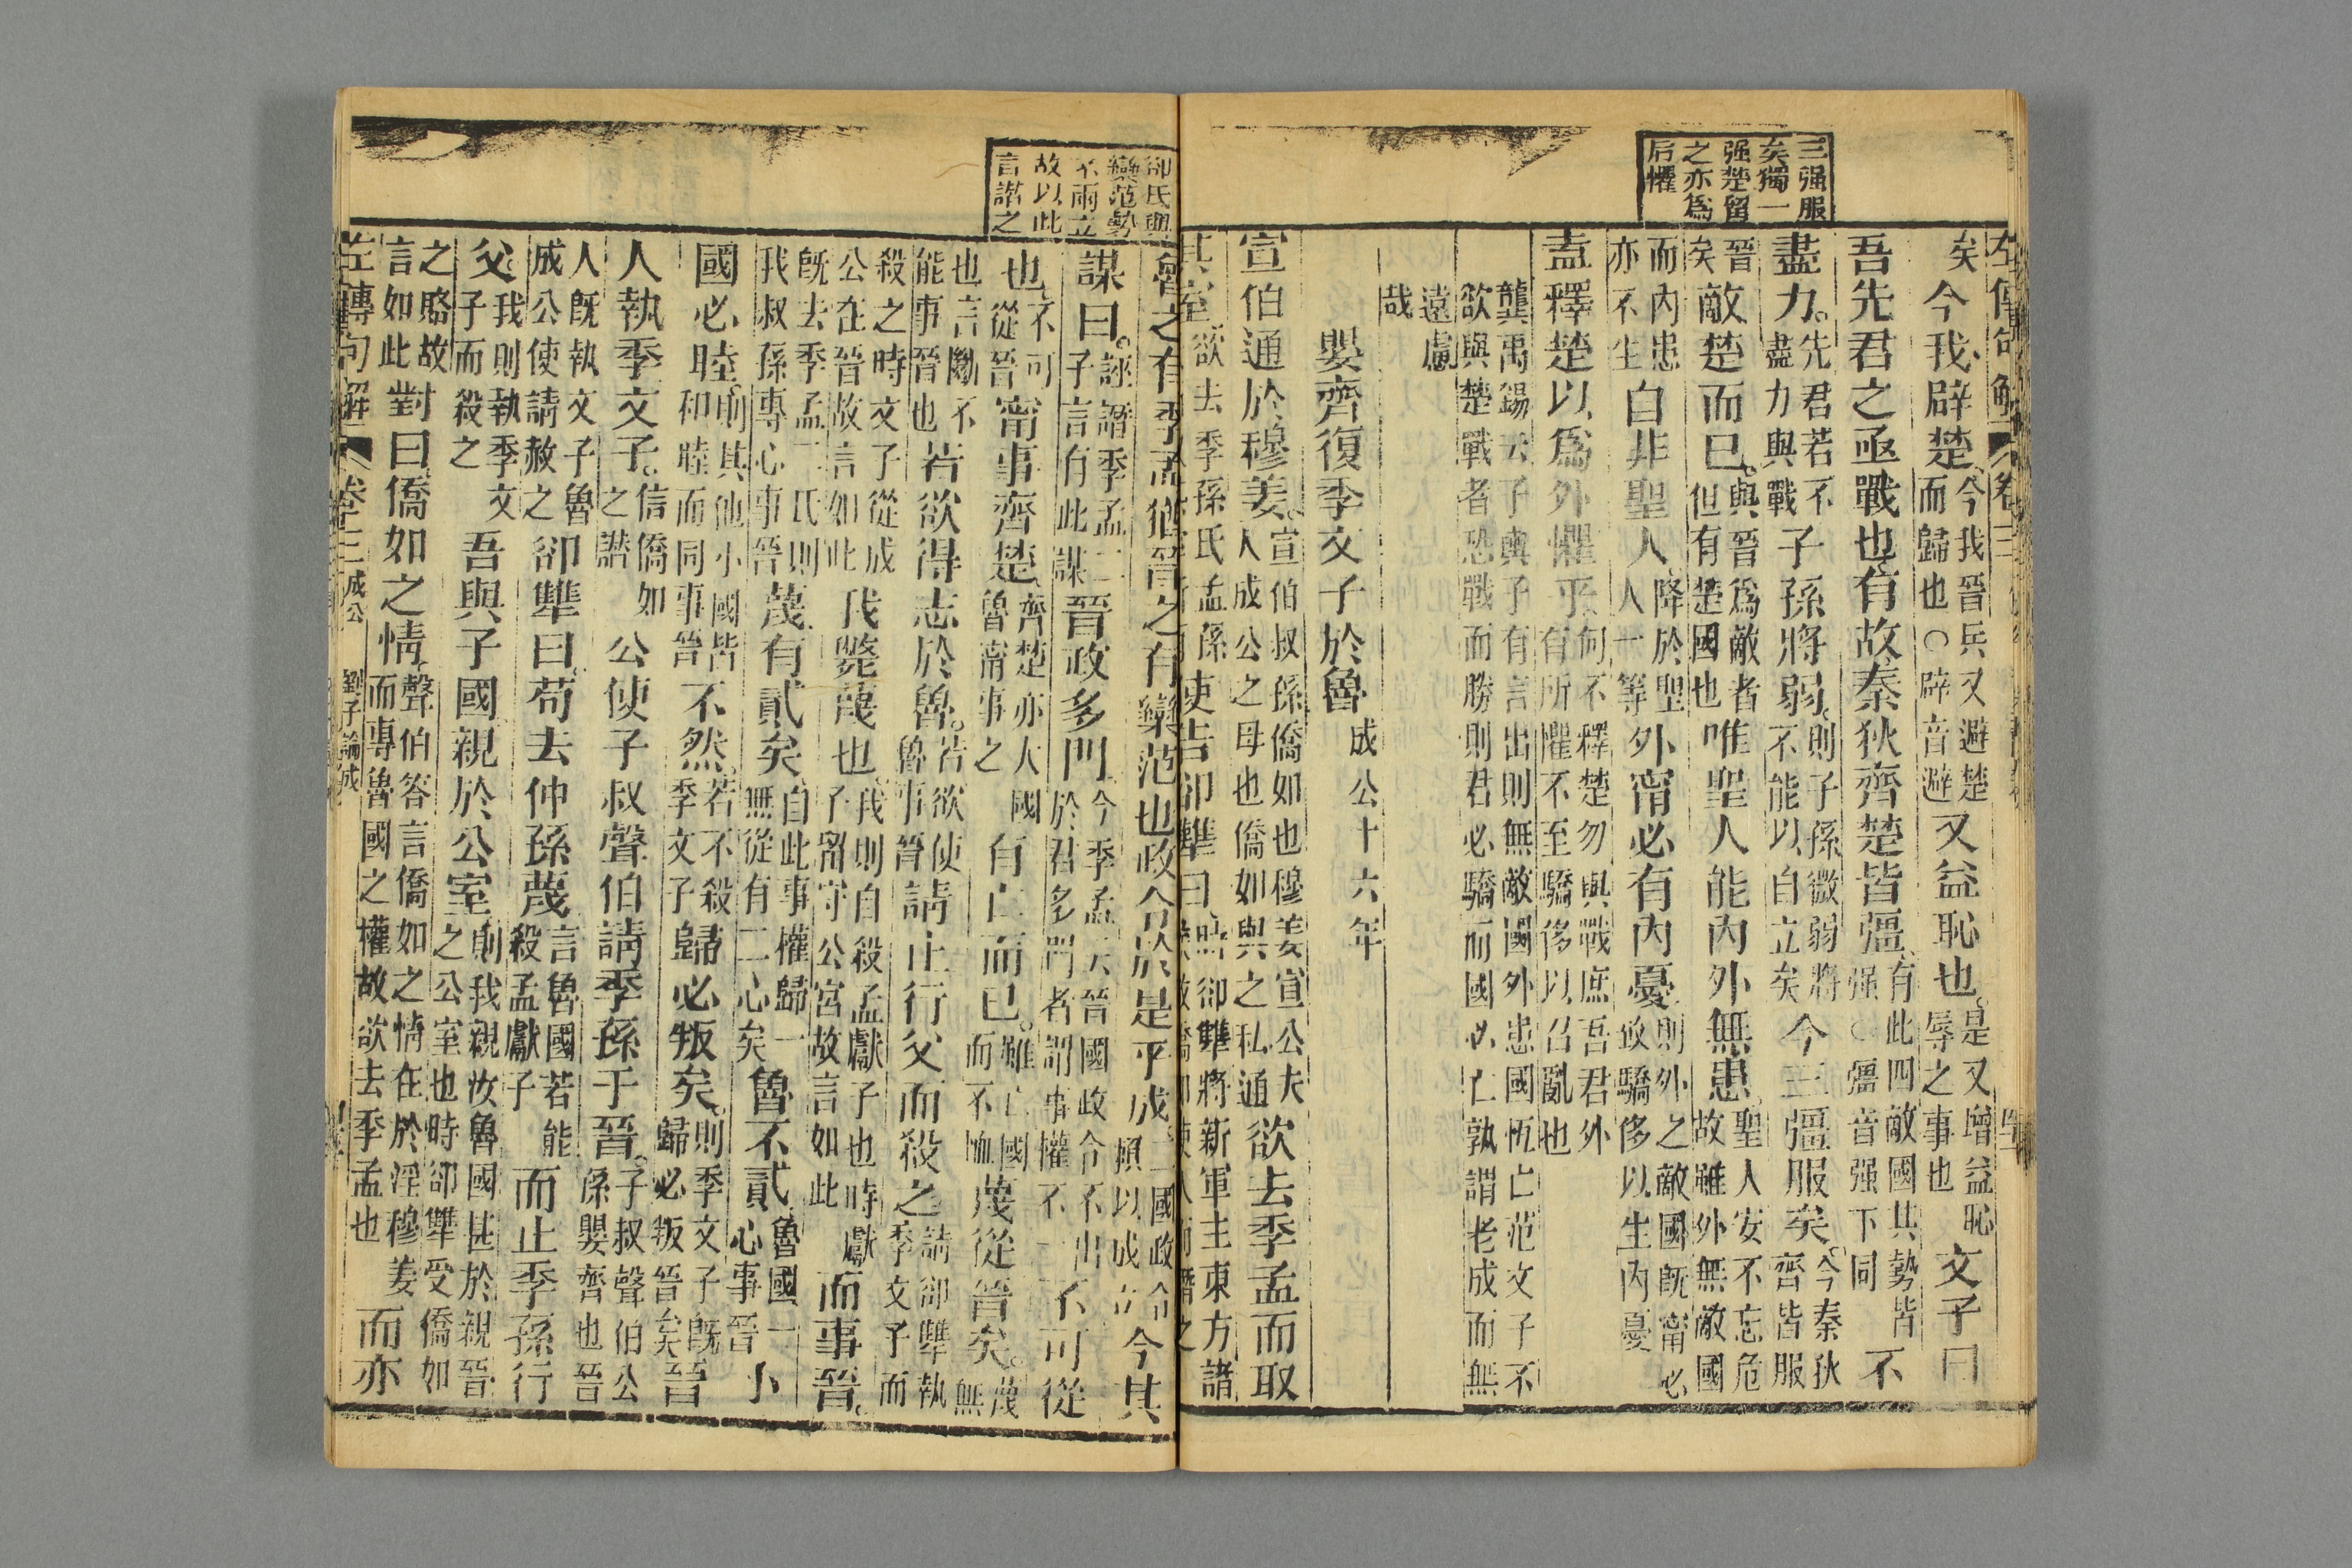 三强服
矣獨一
强楚留
之亦爲
后懼
左傳句解 卷三
矣今我辟楚今我晉兵又避楚而歸也○辟音避又益恥也是又增益恥辱之事也文子曰
吾先君之亟戰也有故秦狄齊楚皆彊有此四敵國其勢皆强○彊音强下同不
盡力先君若不盡力與戰子孫將弱則子孫微弱將不能以自立矣今三彊服矣今秦狄齊皆服
晉矣敵楚而已與晉爲敵者但有楚國也唯聖人能內外無患聖人安不忘危故雖外無敵國
而內患亦不生自非聖人降於聖人一等外甯必有內憂則外之敵國旣甯必致驕侈以生內憂
盍釋楚以爲外懼乎何不釋楚勿與戰庶吾君外有所懼不至驕侈以召亂也
龔禹錫云子輿子有言出則無敵國外患國恆亡范文子不欲與楚戰者恐戰而勝則君必驕而國必亡孰謂老成而無
遠慮哉
嬰齊復季文子於魯成公十六年
宣伯通於穆姜宣伯叔孫僑如也穆姜宣公夫人成公之母也僑如與之私通欲去季孟而取
其室欲去季孫氏孟孫使告郤犨曰時郤犨將新軍主東方諸
郤氏與
欒范勢
不兩立
故以此
言譖之
魯之有季孟猶晉之有欒范也政令於是乎成二國政令頼以成立今其
謀曰誣譖季孟二子言有此謀晉政多門今季孟云晉國政令不出於君多門者謂事權不一不可從
也不可從晉甯事齊楚齊楚亦大國魯甯事之有亡而已雖亡國而不恤蔑從晉矣蔑無
也言斷不能事晉也若欲得志於魯若欲使魯事晉請止行父而殺之請郤犨執季文子而
殺之時文子從成公在晉故言如此我斃蔑也我則自殺孟獻子也時獻子留守公宮故言如此而事晉
旣去季孟二氏則我叔孫專心事晉蔑有貳矣自此事權歸一無從有二心矣魯不貳魯國一心事晉小
國必睦則其他小國皆和睦而同事晉不然若不殺季文子歸必叛矣則季文子旣歸必叛晉矣晉
人執季文子信僑如之譖公使子叔聲伯請季孫于晉子叔聲伯公孫嬰齊也晉
人旣執文子魯成公使請赦之郤犨曰苟去仲孫蔑言魯國若能殺孟獻子而止季孫行
父我則執季文子而殺之吾與子國親於公室則我親汝魯國甚於親晉之公室也時郤犨受僑如
之賂故言如此對曰僑如之情聲伯答言僑如之情在於淫穆姜而專魯國之權故欲去季孟也而亦
左傳句解 卷三 成公